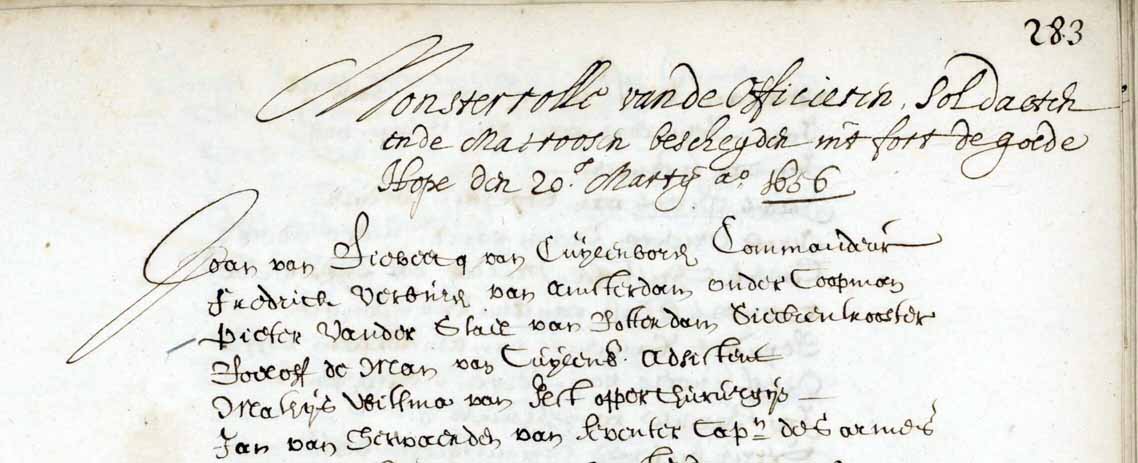 283
Monsterrolle van de Officieren, Soldaeten
ende Matroosen bescheyden int fort de goede
Hope den 20.e Marty ao. 1656
Joan van Riebeecq van Cuylenborch Commandeur
Fredrick Verburch van Amsterdam onder Coopman
Pieter Vander Stael van Rotterdam Sieckentrooster
Roeloff de Man van Cuylenb. Adsistent
Mathijs Willma van opper Chirurgijs
Jan van Herwaerden van Deventer Capn. des armes